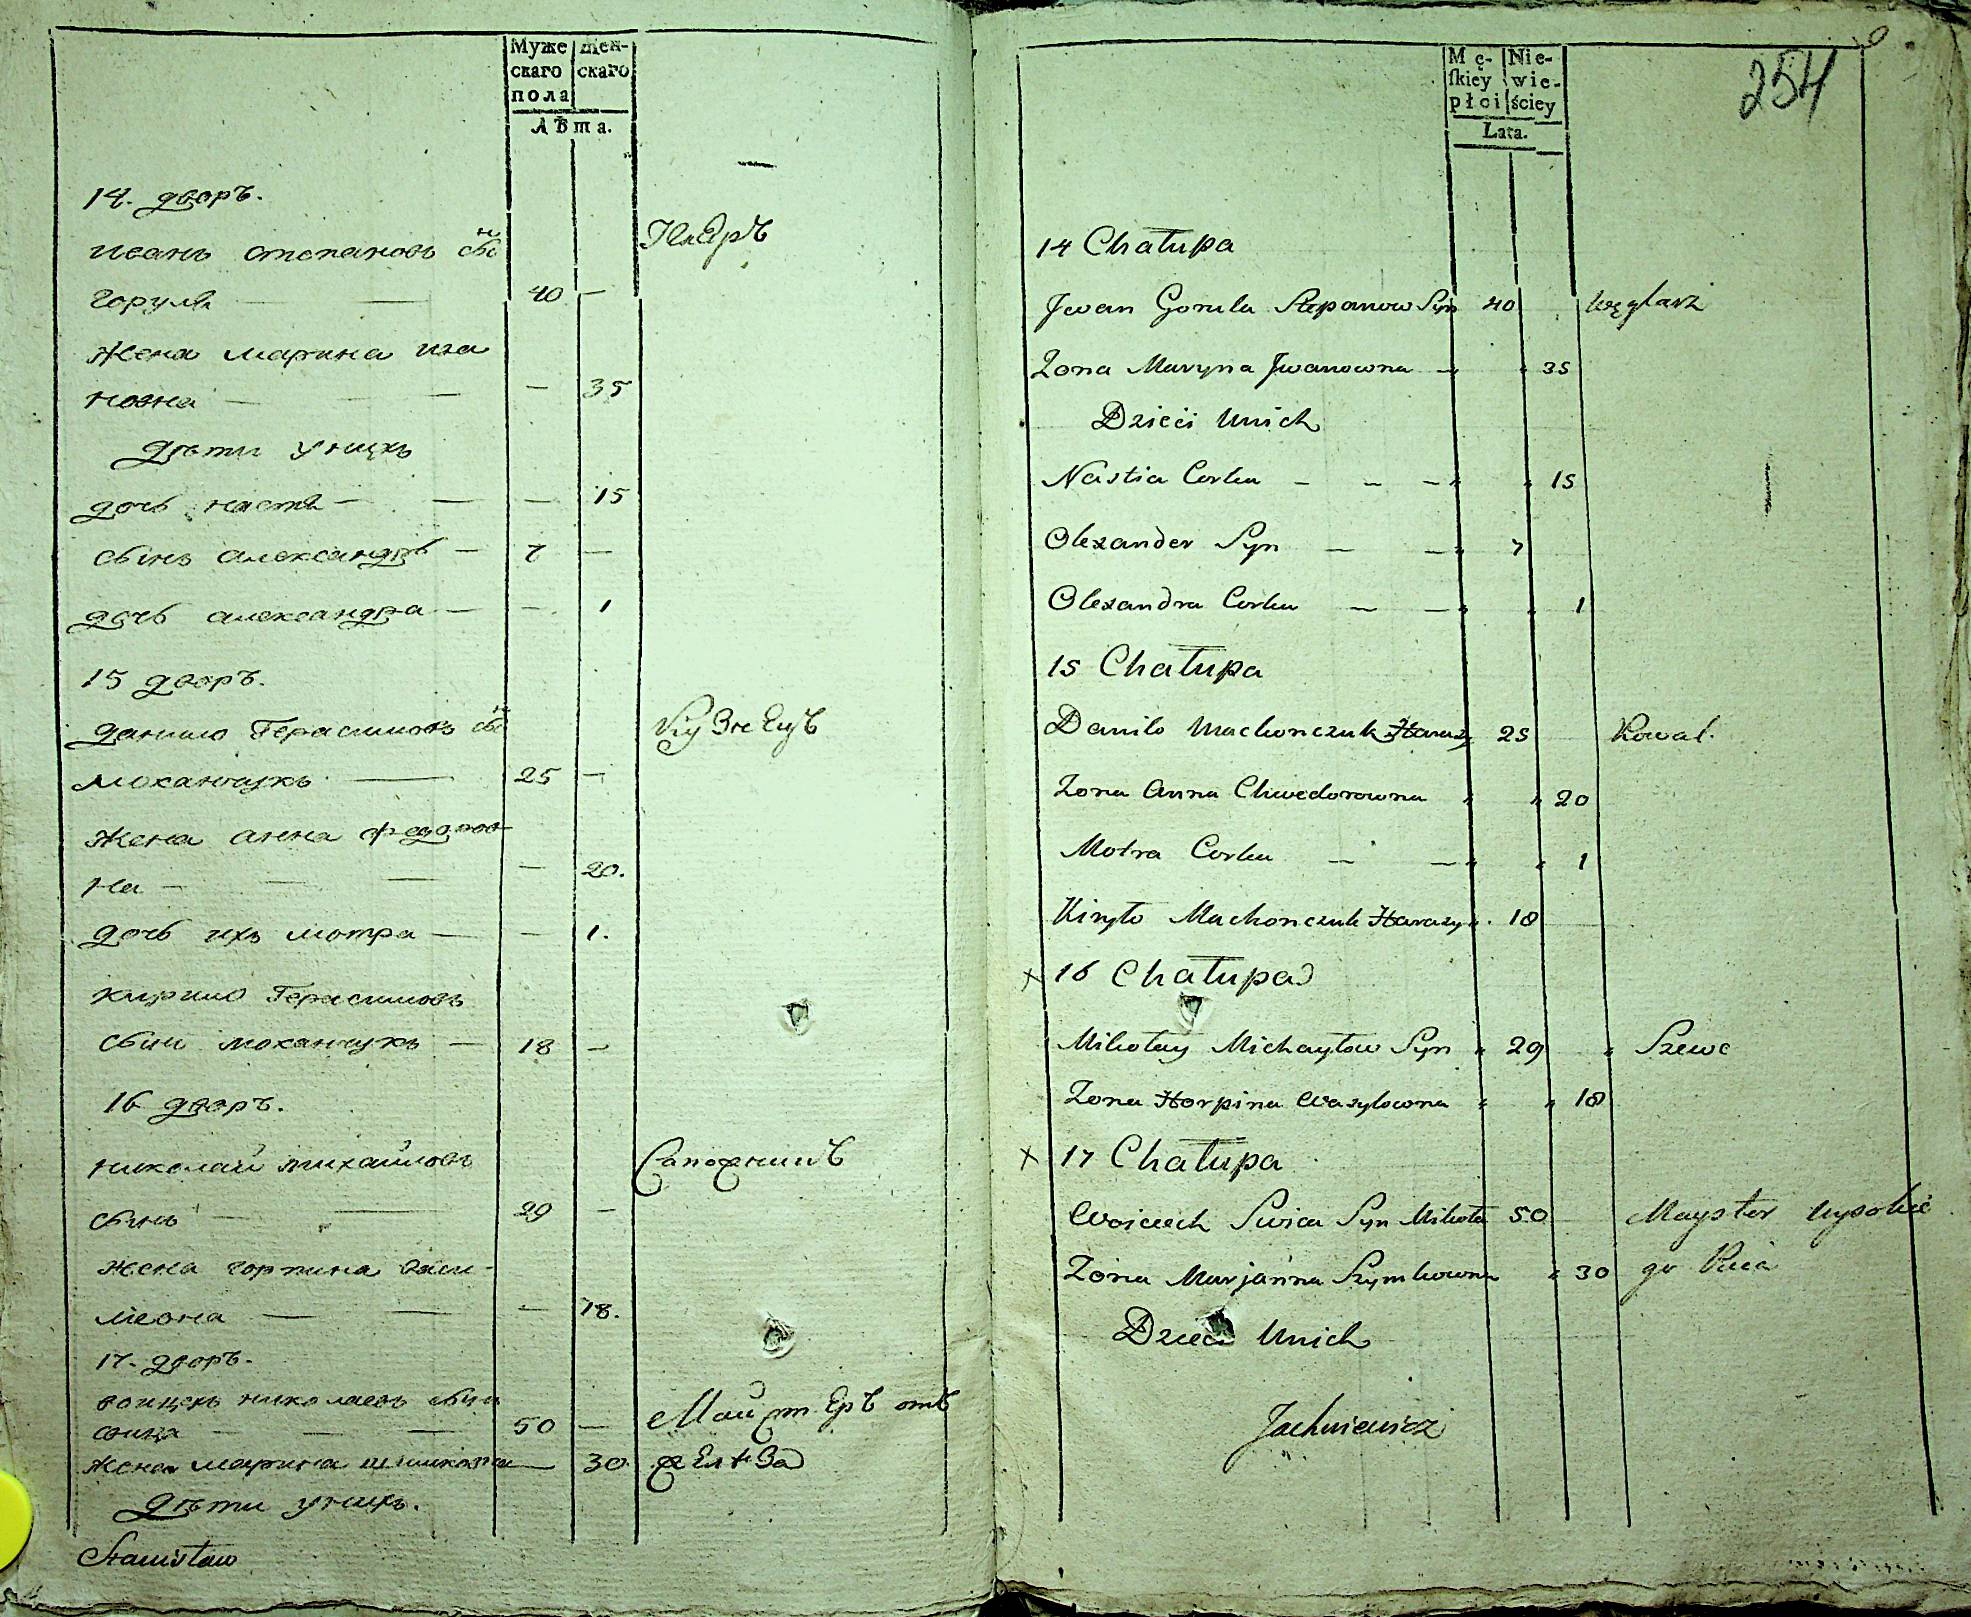 Муже
скаго
пола
Жен-
скаго
Лѣта.
14. дворъ.
иванъ степановъ снъ
горуля — — 40 —
жена марина ива
новна — — — 35
дѣти унихъ
дочь настя — — — 15
сынъ александръ — 7 —
дочь александра — — 1
15 дворъ.
данило Герасимовъ снъ
Кузнецъ
моканчукъ — 25 —
жена анна федоров
на — — — — 20.
дочь ихъ мотра — — 1.
кирило Герасимовъ
сынъ моканчукъ — 18 —
16 дворъ.
николай михайловъ
Сапожникъ
сынъ — — 29 —
жена горпина васи-
левна — — — 18.
17. дворъ.
воицехъ николаевъ сынъ
свица — — — 50 — Майстеръ отъ
жена марина шимковна — 30
дѣти унихъ.
Stanisław
254
Mę-
ſkiey
płci
Nie-
wie-
ściey
Lata.
14 Chałupa
Jwan Gorula Stepanow Syn 40 Węglarz
Zona Maryna Jwanowna — " " 35
Dzieci Unich
Nastia Corka — — — " " 15
Olexander Syn — — " 7
Olexandra Corka — — " " 1
15 Chałupa
Danilo Machonczuk Harasy 25 Kowal.
Zona Anna Chwedorowna " " 20
Motra Corka — — " " 1
Kiryło Machonczuk Harasy " 18
x 16 Chałupa
Mikołay Michayłow Syn " 29 " Szewc
Zona Horpina Wasylowna " " 18
x 17 Chałupa
Woiciech Swica Syn Mikoła 50 Mayster wysokie
Zona Marjanna Szymkowna " 30 go
Dzieci Unich
Jachniewicz